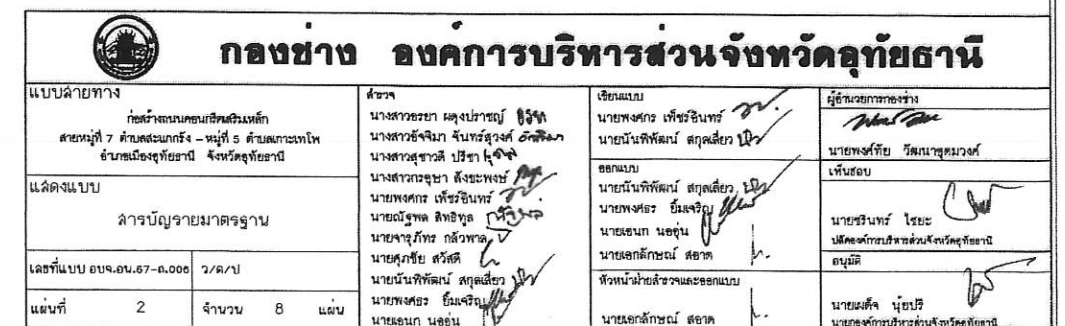 กองช่าง องค์การบริหารส่วนจังหวัดอุทัยธานี
แบบสายทาง
ก่อสร้างถนนคอนกรีตเสริมเหล็ก
สายหมู่ที่ 7 ตำบลสะแกกรัง - หมู่ที่ 5 ตำบลเกาะเทโพ
อำเภอเมืองอุทัยธานี จังหวัดอุทัยธานี
แสดงแบบ
สารบัญรายมาตรฐาน
เลขที่แบบ อบจ.อน.67-ถ.006 ว/ด/ป
แผ่นที่ 2 จำนวน 8 แผ่น
สำรวจ
นางสาวอรยา ผดุงปราชญ์
นางสาวอัจจิมา จันทร์สุวงศ์
นางสาวสุชาวดี ปรีชา
นางสาวกรอุษา ตังชะพงษ์
นายพงศกร เพ็ชร์อินทร์
นายณัฐพล สิทธิทูล
นายจารุภัทร กลัวพาล
นายศุภชัย สวัสดี
นายนันพิพัฒน์ สกุลเสี่ยว
นายพงศธร ยิ้มเจริญ
นายเอนก นออุ่น
เขียนแบบ
นายพงศกร เพ็ชร์อินทร์
นายนันพิพัฒน์ สกุลเสี่ยว
ออกแบบ
นายนันพิพัฒน์ สกุลเสี่ยว
นายพงศธร ยิ้มเจริญ
นายเอนก นออุ่น
นายเอกลักษณ์ สอาด
หัวหน้าฝ่ายสำรวจและออกแบบ
นายเอกลักษณ์ สอาด
ผู้อำนวยการกองช่าง
นายพงศ์ทัย วัฒนาชุตมวงศ์
เห็นชอบ
นายชรินทร์ ไชยะ
ปลัดองค์การบริหารส่วนจังหวัดอุทัยธานี
อนุมัติ
นายเผด็จ นุ้ยปรี
นายกองค์การบริหารส่วนจังหวัดอุทัยธานี